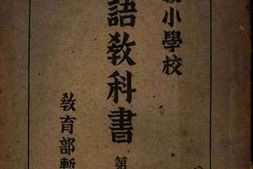 小學校
語敎科書
第
敎育部